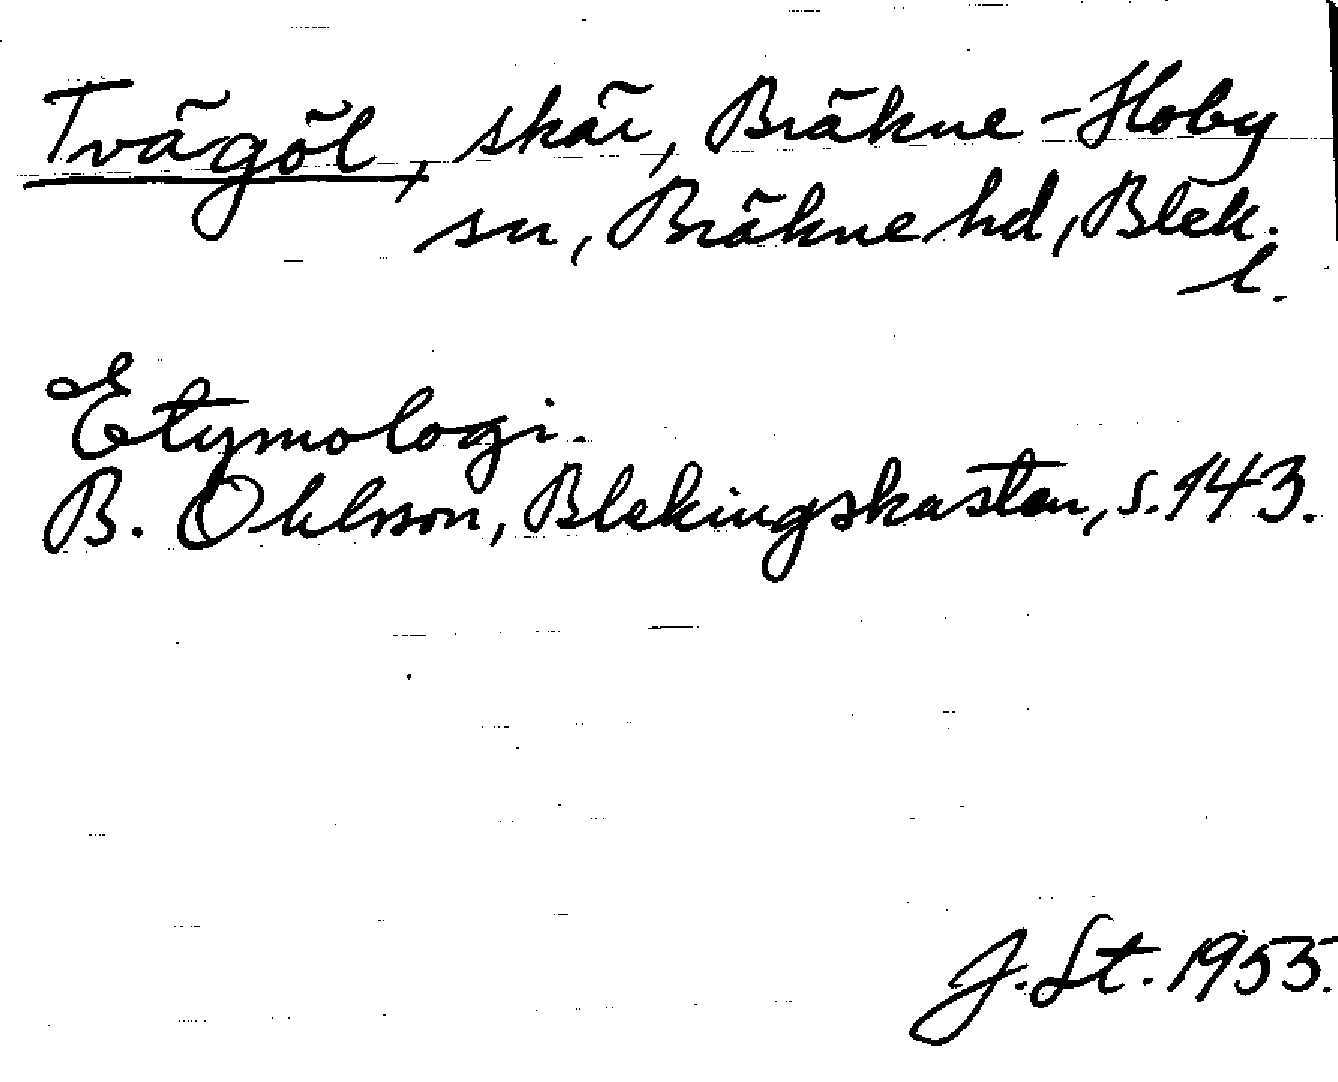 Tvägöl, skär, Bräkne-Hoby
sn, Bräkne hd, Blek.
l.
Etymologi.
B. Ohlsson, Blekingskusten, s. 143.
J. St. 1955.